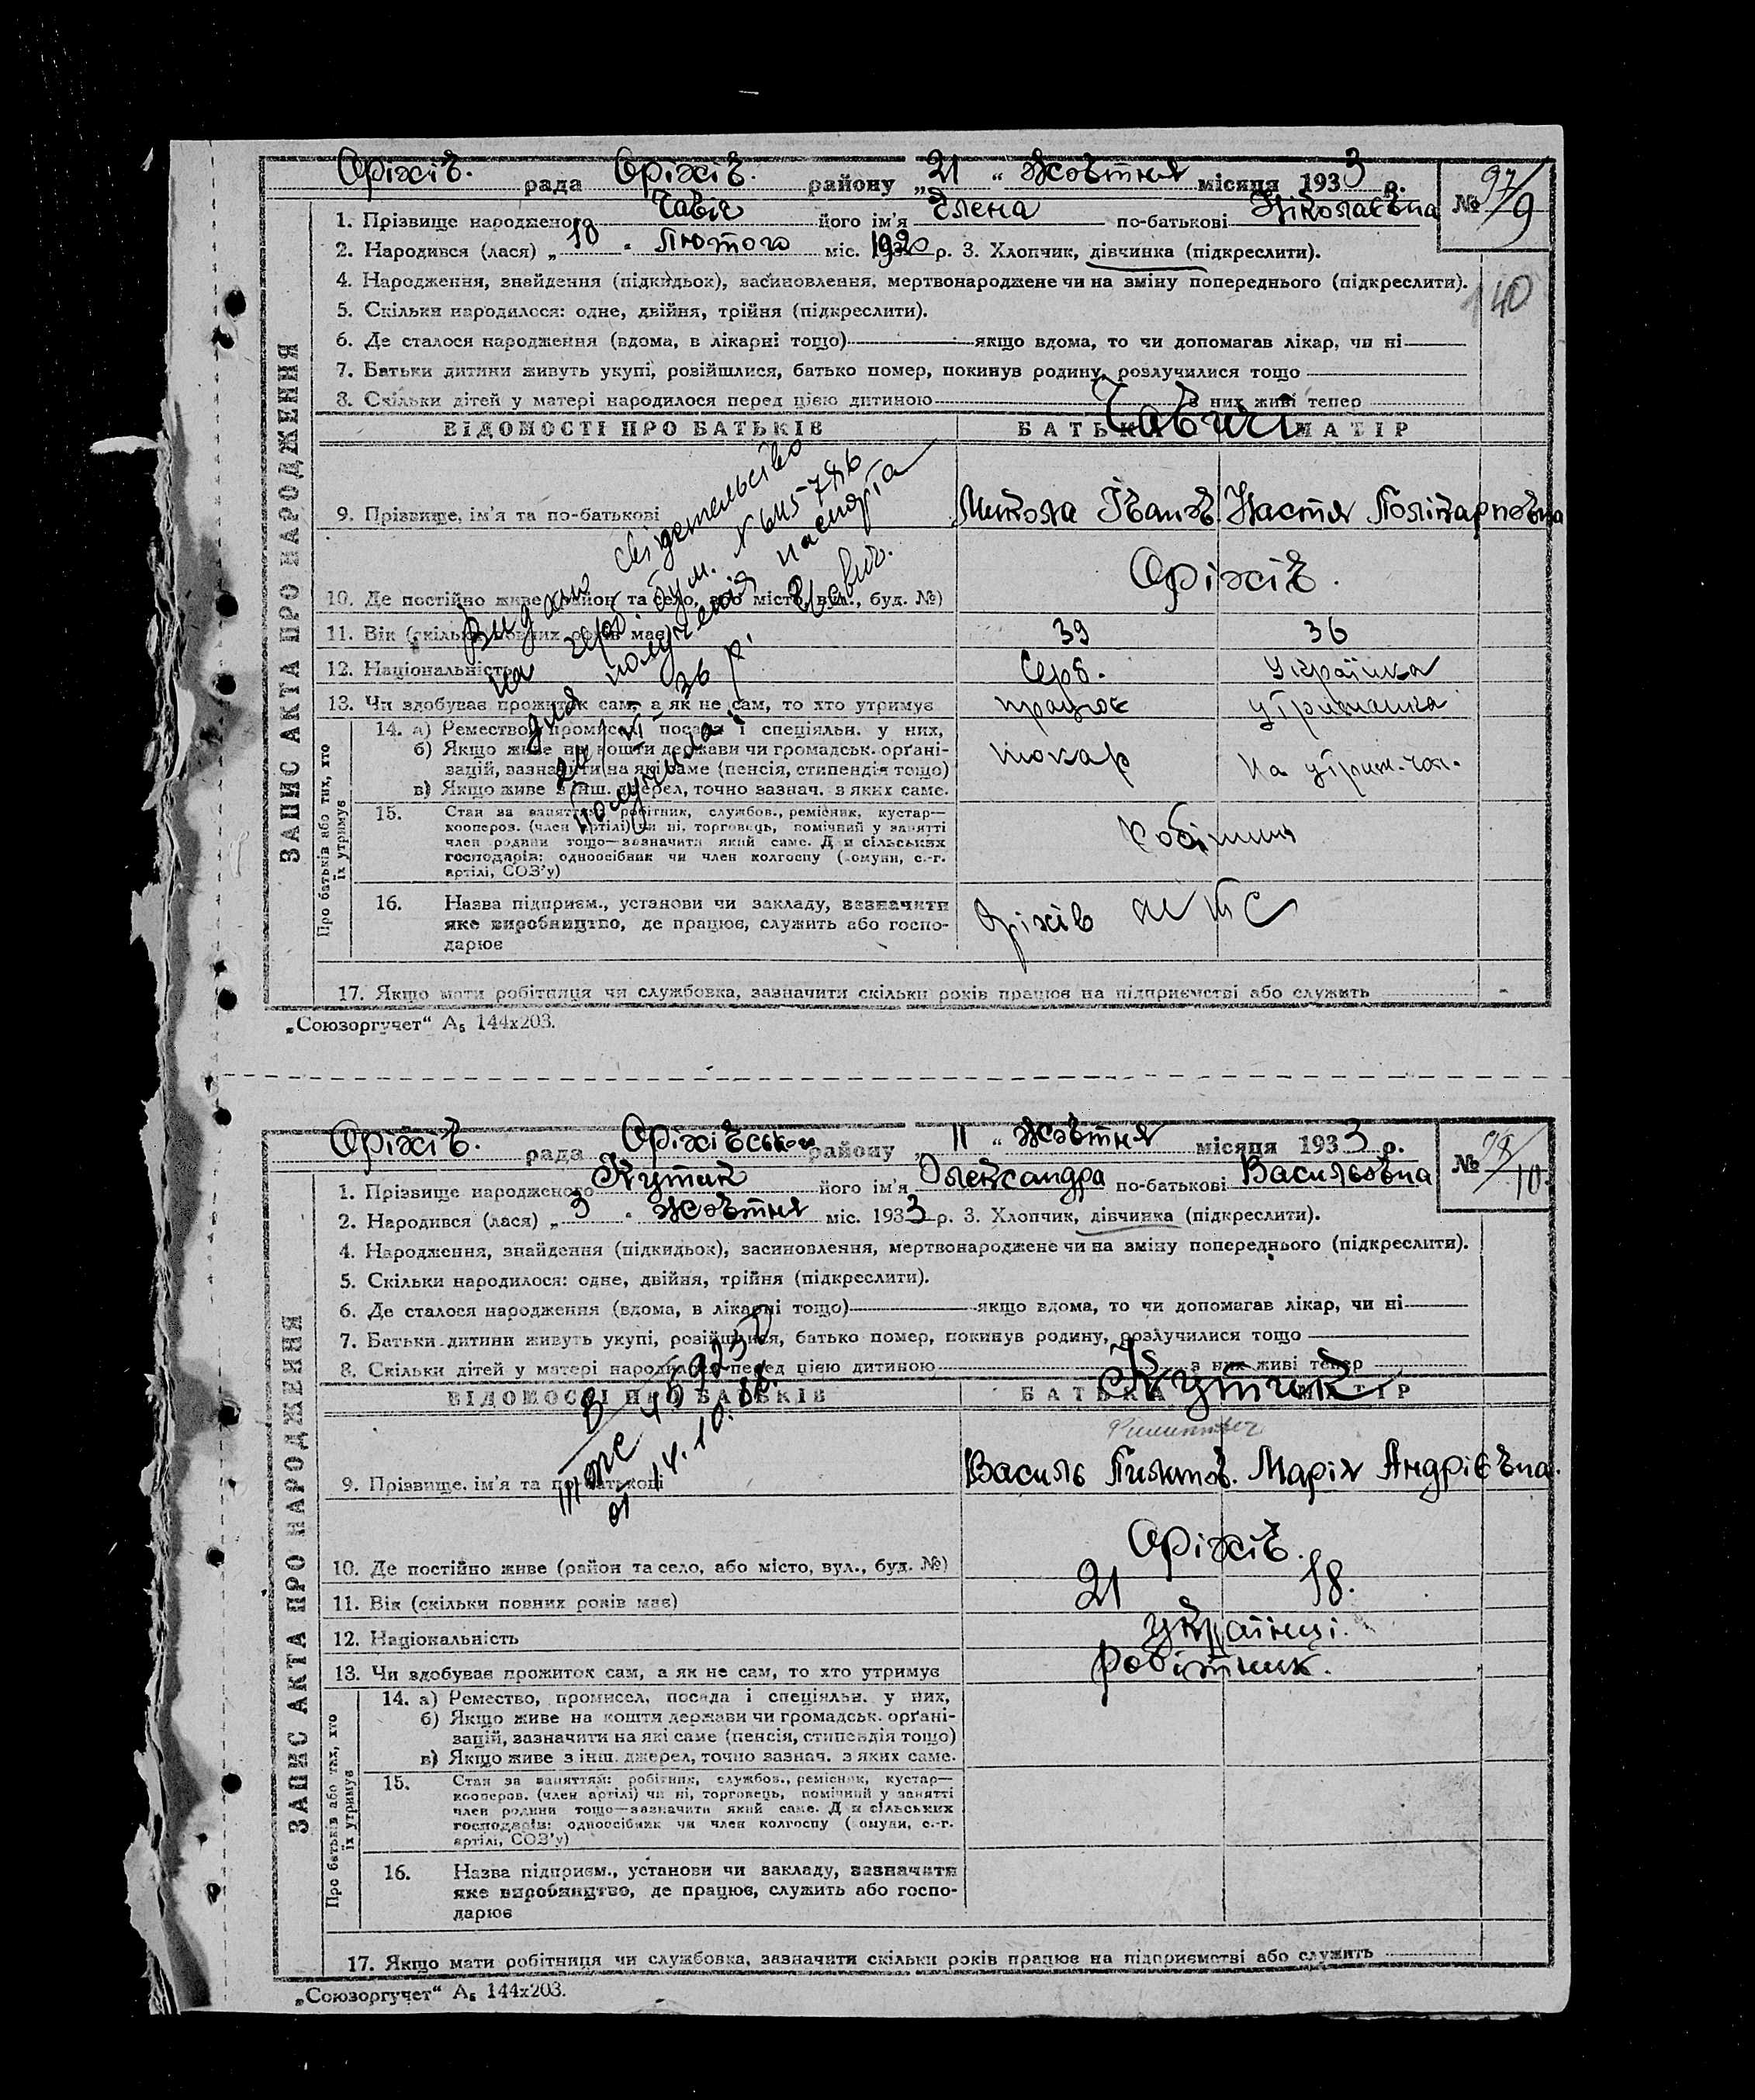 Оріхів. рада Оріхів. району „21“ Жовтня місяця 1933 р.
№ 97/9
1. Прізвище народженого Чавіч його ім'я Єлена по-батькові Ніколаєвна
2. Народився (лася) „10“ Лютого міс. 1920 р. 3. Хлопчик, дівчинка (підкреслити).
4. Народження, знайдення (підкидьок), засиновлення, мертвонароджене чи на зміну попереднього (підкреслити).
140
5. Скільки народилося: одне, двійня, трійня (підкреслити).
6. Де сталося народження (вдома, в лікарні тощо) якщо вдома, то чи допомагав лікар, чи ні
7. Батьки дитини живуть укупі, розійшлися, батько помер, покинув родину, розлучилися тощо
8. Скільки дітей у матері народилося перед цією дитиною з них живі тепер
ЗАПИС АКТА ПРО НАРОДЖЕННЯ
ВІДОМОСТІ ПРО БАТЬКІВ БАТЬКА МАТІР
Чавичі
9. Прізвище, ім'я та по-батькові Микола Іванов Настя Полікарповна
Видано свідетельство
на герб. бум. № 645778
для получения паспорта
36 р.
получила Чавич.
10. Де постійно живе (район та село, або місто, вул., буд. №) Оріхів.
11. Вік (скільки повних років має) 39 36
12. Національність Серб. Українка
13. Чи здобуває прожиток сам, а як не сам, то хто утримує працює утриманка
Про батьків або тих, хто їх утримує
14. а) Ремество, промисел, посада і спеціяльн. у них,
б) Якщо живе на кошти держави чи громадськ. орґані-
зацій, зазначити на які саме (пенсія, стипендія тощо)
в) Якщо живе з інш. джерел, точно зазнач. з яких саме.
токар на утрим. чол.
15. Стан за заняттям: робітник, службов., ремісник, кустар—
кооперов. (член артілі) чи ні, торговець, помічний у занятті
член родини тощо—зазначити який саме. Для сільських
господарів: одноосібник чи член колгоспу (комуни, с.-г.
артілі, СОЗ'у)
робітник
16. Назва підприєм., установи чи закладу, зазначити
яке виробництво, де працює, служить або госпо-
дарює
Оріхів МТС
17. Якщо мати робітниця чи службовка, зазначити скільки років працює на підприємстві або служить
„Союзоргучет“ А₅ 144х203.
Оріхів. рада Оріхівського району „11“ Жовтня місяця 1933 р.
№ 98/10.
1. Прізвище народженого Кутик його ім'я Олександра по-батькові Васильовна
2. Народився (лася) „3“ Жовтня міс. 1933 р. 3. Хлопчик, дівчинка (підкреслити).
4. Народження, знайдення (підкидьок), засиновлення, мертвонароджене чи на зміну попереднього (підкреслити).
5. Скільки народилося: одне, двійня, трійня (підкреслити).
6. Де сталося народження (вдома, в лікарні тощо) якщо вдома, то чи допомагав лікар, чи ні
7. Батьки дитини живуть укупі, розійшлися, батько помер, покинув родину, розлучилися тощо
8. Скільки дітей у матері народилося перед цією дитиною з них живі тепер
ЗАПИС АКТА ПРО НАРОДЖЕННЯ
ВІДОМОСТІ ПРО БАТЬКІВ БАТЬКА МАТІР
Кутик
9. Прізвище, ім'я та по-батькові Василь Пилипов. Марія Андрієвна.
10. Де постійно живе (район та село, або місто, вул., буд. №) Оріхів.
11. Вік (скільки повних років має) 21 18.
12. Національність українці.
13. Чи здобуває прожиток сам, а як не сам, то хто утримує робітник.
Про батьків або тих, хто їх утримує
14. а) Ремество, промисел, посада і спеціяльн. у них,
б) Якщо живе на кошти держави чи громадськ. орґані-
зацій, зазначити на які саме (пенсія, стипендія тощо)
в) Якщо живе з інш. джерел, точно зазнач. з яких саме.
15. Стан за заняттям: робітник, службов., ремісник, кустар—
кооперов. (член артілі) чи ні, торговець, помічний у занятті
член родини тощо—зазначити який саме. Для сільських
господарів: одноосібник чи член колгоспу (комуни, с.-г.
артілі, СОЗ'у)
16. Назва підприєм., установи чи закладу, зазначити
яке виробництво, де працює, служить або госпо-
дарює
17. Якщо мати робітниця чи службовка, зазначити скільки років працює на підприємстві або служить
„Союзоргучет“ А₅ 144х203.